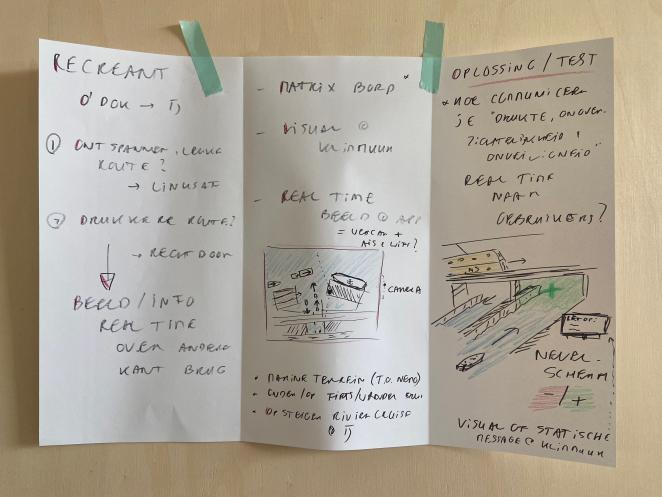 RECREANT
O'DOK → IJ
① ONTSPANNEN, LEUKE
ROUTE?
→ LINKSAF
② DRUKKERE ROUTE?
→ RECHTDOOR
BEELD/INFO
REAL TIME
OVER ANDERE
KANT BRUG
- MATRIX BORD *
- VISUAL @
- REAL TIME
BEELD @ APP
= VESCAN +
AIS & WIFI?
• CAMERA
• MARINE TERREIN (T.O. NEMO)
• ONDER/OP FIETS/VOETGANGERS
• OP STEIGER RIVIER CRUISE
@ IJ
OPLOSSING / TEST
* HOE COMMUNICEER
JE "DRUKTE, ONOVER-
ZICHTELIJKHEID,
ONVEILIGHEID"
REAL TIME
NAAR
GEBRUIKERS?
LET OP:
NEVEL-
SCHERM
- / +
VISUAL OF STATISCHE
MESSAGE @